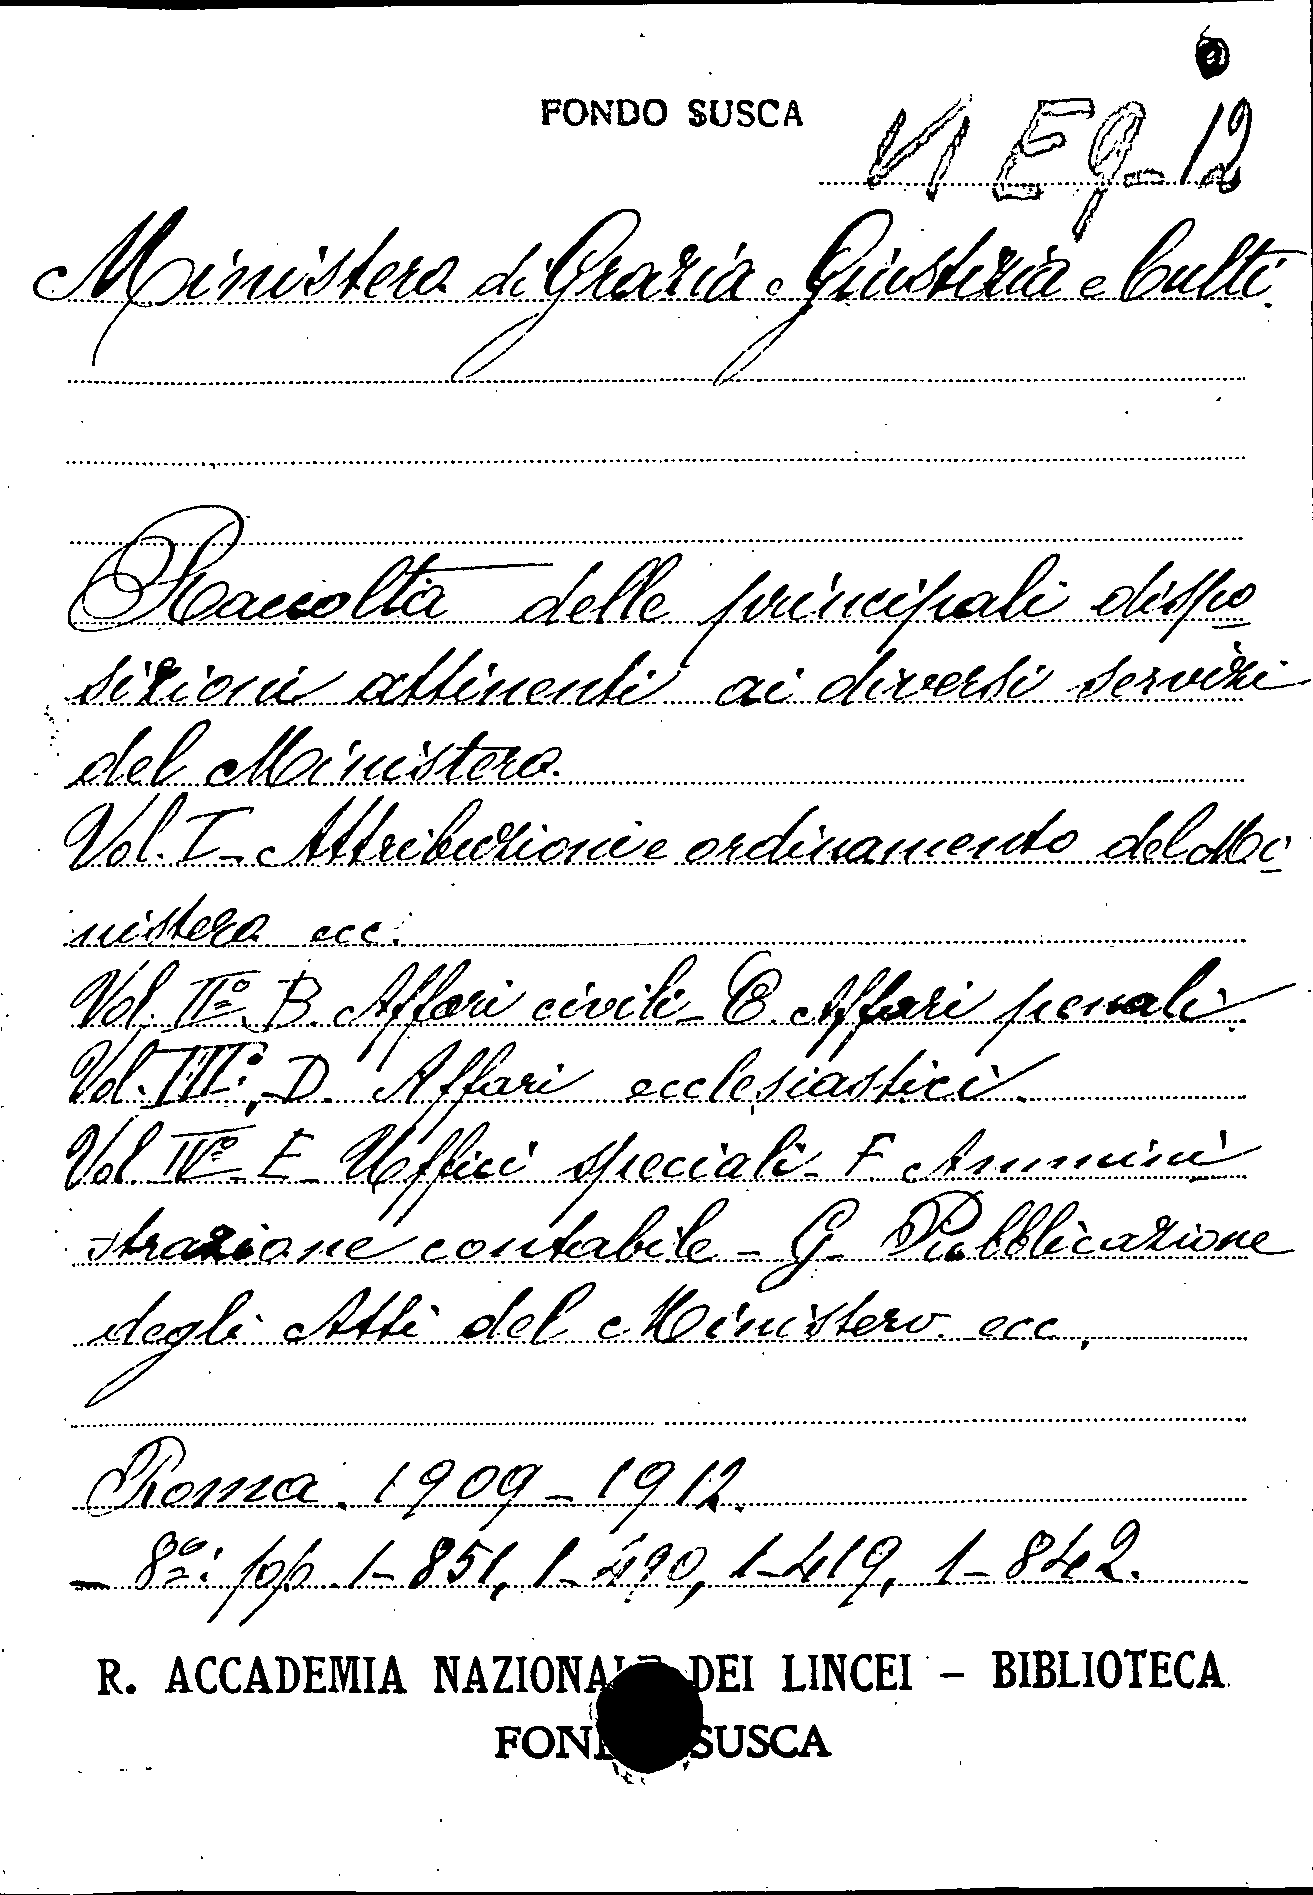 FONDO SUSCA
VI E 9-12
Ministero di Grazia e Giustizia e Culti.
Raccolta delle principali dispo
sizioni attinenti ai diversi servizi
del Ministero.
Vol. I - Attribuzioni e ordinamento del Mi
nistero ecc.
Vol. IIº. B. Affari civili - C. Affari penali.
Vol. IIIº, D. Affari ecclesiastici.
Vol. IVº - E - Uffici speciali - F. Ammini
strazione contabile - G - Pubblicazione
degli Atti del Ministero. ecc.
Roma. 1909-1912.
- 8º: pp. 1-851, 1-490, 1-419, 1-842.
R. ACCADEMIA NAZIONALE DEI LINCEI - BIBLIOTECA
FONDO SUSCA